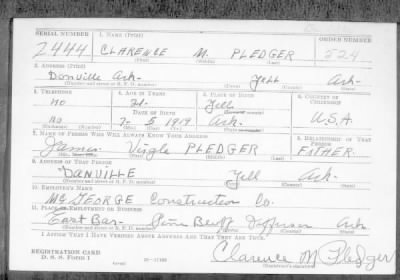 SERIAL NUMBER 1. NAME (Print) ORDER NUMBER
2444 CLARENCE M. PLEDGER 524
(First) (Middle) (Last)
2. ADDRESS (Print)
Danville Ark. Yell Ark.
(Number and street or R. F. D. number) (Town) (County) (State)
3. TELEPHONE 4. AGE IN YEARS 5. PLACE OF BIRTH 6. COUNTRY OF CITIZENSHIP
no 21. Yell
DATE OF BIRTH
no 7- 5 1919 Ark. U.S.A.
(Exchange) (Number) (Mo.) (Day) (Yr.) (State or country)
7. NAME OF PERSON WHO WILL ALWAYS KNOW YOUR ADDRESS 8. RELATIONSHIP OF THAT PERSON
James Virgle PLEDGER FATHER.
(First) (Middle) (Last)
9. ADDRESS OF THAT PERSON
DANVILLE Yell Ark.
(Number and street or R. F. D. number) (Town) (County) (State)
10. EMPLOYER'S NAME
McGEORGE Construction Co.
11. PLACE OF EMPLOYMENT OR BUSINESS
East Bar. Pine Bluff Jefferson Ark
(Number and street or R. F. D. number) (Town) (County) (State)
I AFFIRM THAT I HAVE VERIFIED ABOVE ANSWERS AND THAT THEY ARE TRUE.
REGISTRATION CARD
D. S. S. Form 1
Clarence M. Pledger
(Registrant's signature)